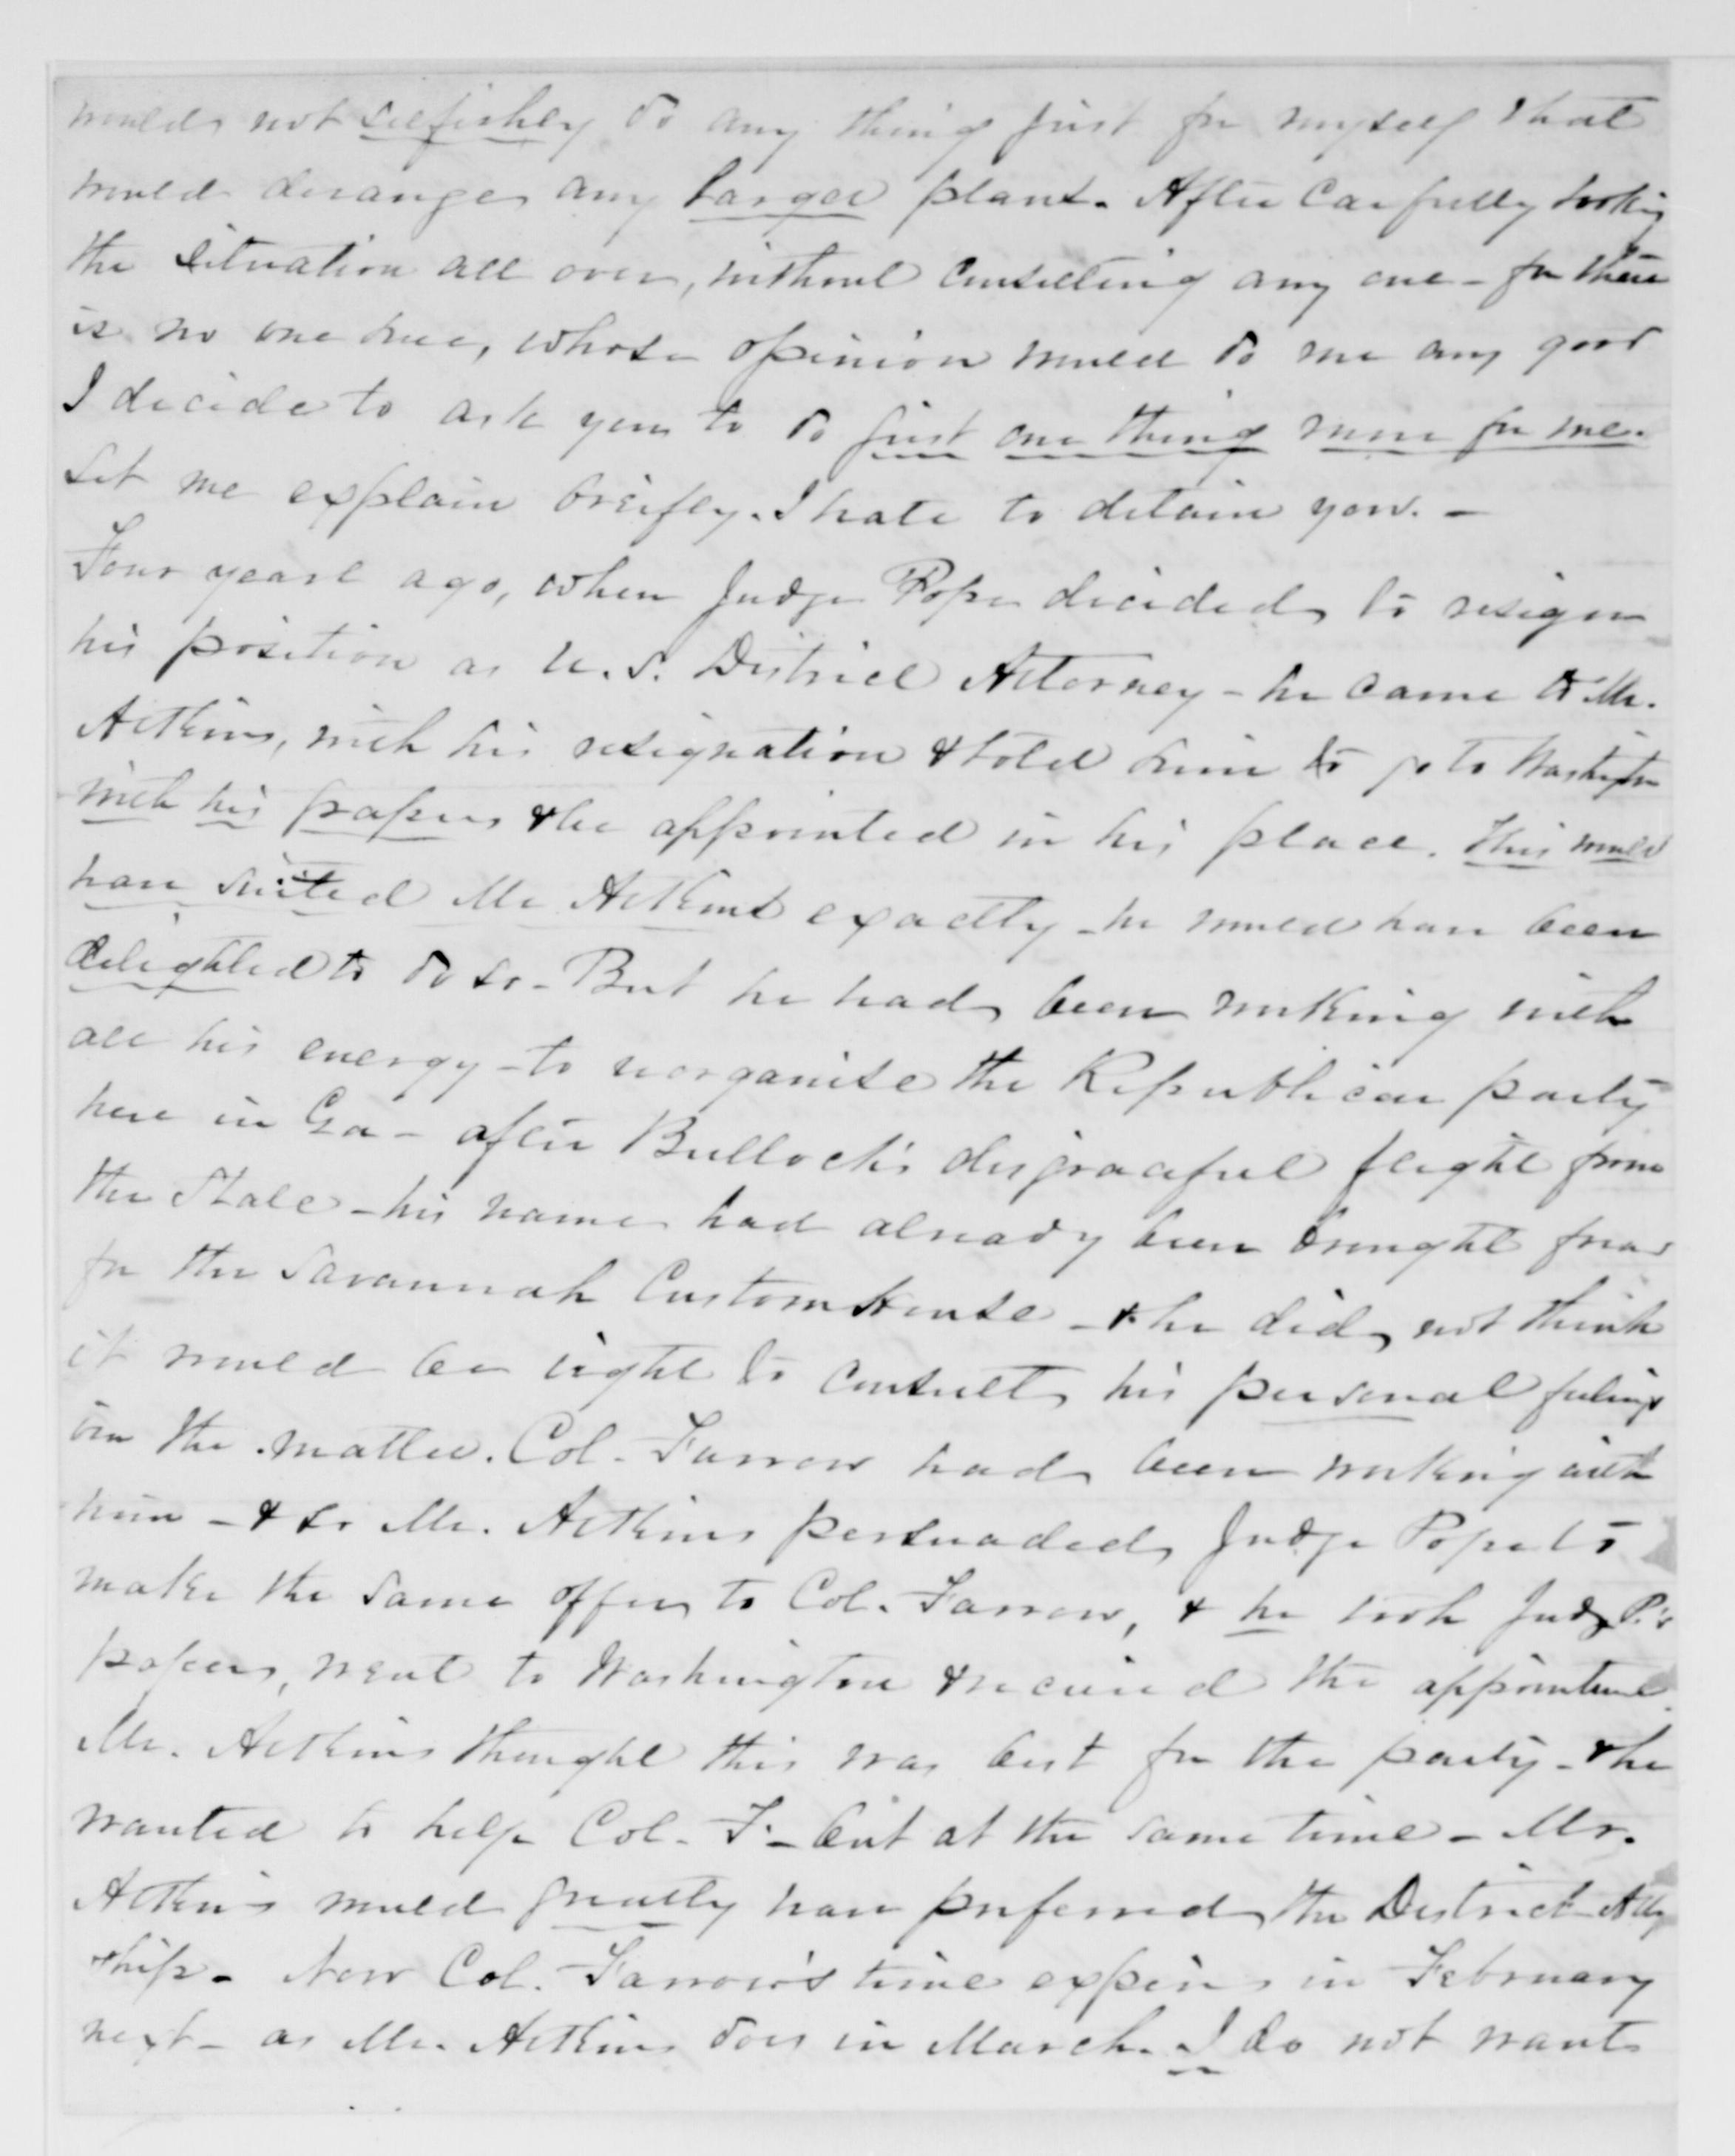 would not selfishly do any thing just for myself that
would derange any larger plans. After carefully looking
the situation all over, without consulting any one - for there
is no one here, whose opinion would do me any good
I decide to ask you to do just one thing more for me.
Let me explain briefly. I hate to detain you. -
Four years ago, when Judge Pope decided to resign
his position as U.S. District Attorney - he came to Mr.
Atkins, with his resignation & told him to go to Washington
with his papers & be appointed in his place. This would
have suited Mr Atkins exactly - he would have been
delighted to do so - But he had been working with
all his energy - to reorganise the Republican party
here in Ga - after Bullock's disgraceful flight from
the State - his name had already been brought forward
for the Savannah Custom House - & he did not think
it would be right to consult his personal feelings
in the matter. Col. Farrow had been working with
him - & so Mr. Atkins persuaded Judge Pope to
make the same offer to Col. Farrow, & he took Judge P.'s
papers, went to Washington & received the appointment.
Mr. Atkins thought this was best for the party - & he
wanted to help Col. F. - but at the same time - Mr.
Atkins would greatly have preferred the District Atty
ship - Now Col. Farrow's time expires in February
next - as Mr. Atkins does in March. I do not want